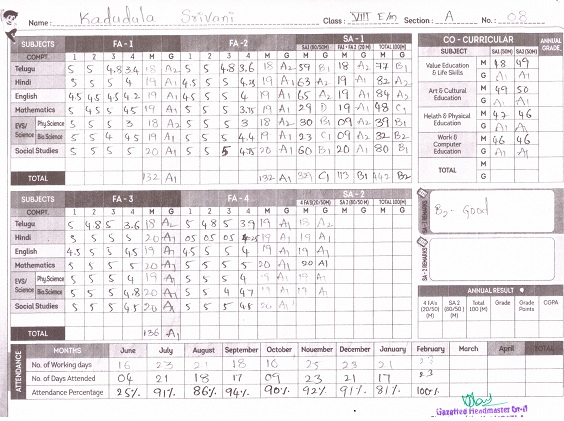 Name : Kadudula Srivani Class : VIII E/m Section : A No. : 08
SUBJECTS FA - 1 FA - 2 SA - 1
COMPT. 1 2 3 4 M G 1 2 3 4 M G SA1 (80/50M) FA1+FA2 (20 M) TOTAL (100M)
Telugu 5 5 4.8 3.4 18 A2 5 5 4.8 3.6 18 A2 59 B1 18 A2 77 B1
Hindi 5 5 5 4 19 A1 4.5 5 5 19 A1 19 A1 82 A2
English 4.5 4.5 4.5 4.2 A1 4.5 5 5 4 19 A1 65 A2 19 A1 84 A2
Mathematics 5 4.5 5 4.5 19 A1 5 5 5 3.75 19 A1 29 19 A1 48 C1
EVS/ Science Phy.Science 5 5 5 3 18 A2 5 5 5 3 18 A2 30 B1 09 A2 39 B1
Bio.Science 5 5 4 4.5 19 A1 5 5 5 4.4 19 A1 23 C1 09 A2 32 B2
Social Studies 5 5 5 5 20 A1 5 5 5 4.75 20 A1 60 B1 20 A1 80 B1
TOTAL 132 A1 132 A1 C1 113 B1 442 B2
CO - CURRICULAR ANNUAL GRADE
SUBJECT SA1 (50M) SA1 (50M)
Value Education & Life Skills M 48 49
G A1 A1
Art & Cultural Education M 49 50
G A1 A1
Helath & Physical Education M 47 46
G A1 A1
Work & Computer Education M 46 46
G A1 A1
TOTAL M
G
SUBJECTS FA - 3 FA - 4 SA - 2
COMPT. 1 2 3 4 M G 1 2 3 4 M G 4 FA'S(20/50M) SA 2 (80/50 M) TOTAL(100 M)
Telugu 5 4.8 5 3.6 18 A2 5 4.8 5 3.9 19 A1 18 A2
Hindi 5 5 5 5 20 A1 05 05 05 4.25 19 A1 19 A1
English 4.5 5 3 4.5 19 A1 5 5 5 4 19 A1 19 A1
Mathematics 5 5 5 5 20 A1 5 5 5 5 20 A1 20 A1
EVS/ Science Phy.Science 5 5 5 5 20 A1 5 5 5 4 19 A1 19 A1
Bio.Science 5 5 5 4.8 20 A1 5 5 4 4.7 19 A1 19 A1
Social Studies 5 5 5 4.5 20 A1 5 5 5 4.5 20 A1
TOTAL 136 A1
SA - 1 REMARKS B2- Good
SA - 2 REMARKS
ANNUAL RESULT
4 FA's (20/50) (M) SA 2 (80/50) (M) Total 100 (M) Grade Grade Points CGPA
ATTENDANCE
MONTHS June July August September October November December January February March April TOTAL
No. of Working days 16 23 21 18 10 25 23 21 23
No. of Days Attended 04 21 18 17 09 23 21 17 23
Attendance Percentage 25% 91% 86% 94% 90% 92% 91% 81% 100%
Gazetted Headmaster Gr-II